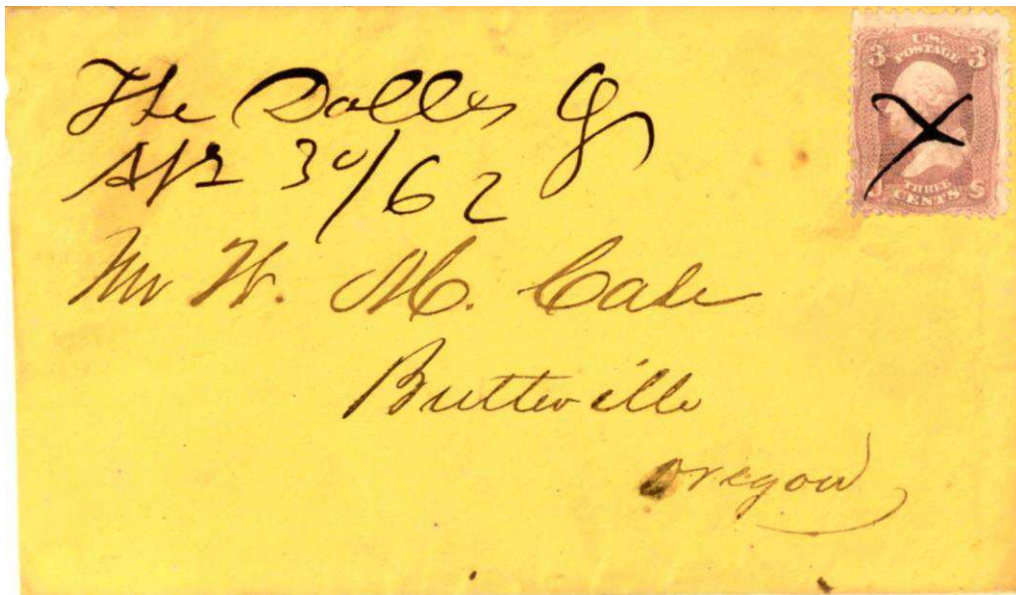 The Dalles Ogn
Apr 30/62
U.S.
POSTAGE
3 3
THREE
CENTS
Mr W. M. Case
Butteville
Oregon